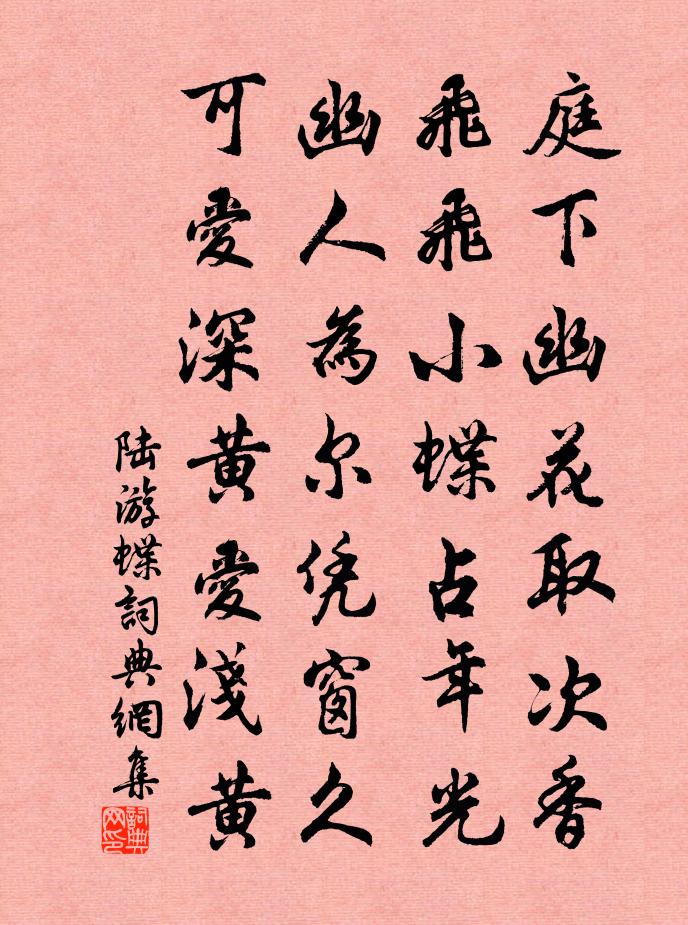 庭下幽花取次香
飛飛小蝶占年光
幽人為尔凭窗久
可愛深黄愛淺黄
陆游蝶詞典網集
詞典网印